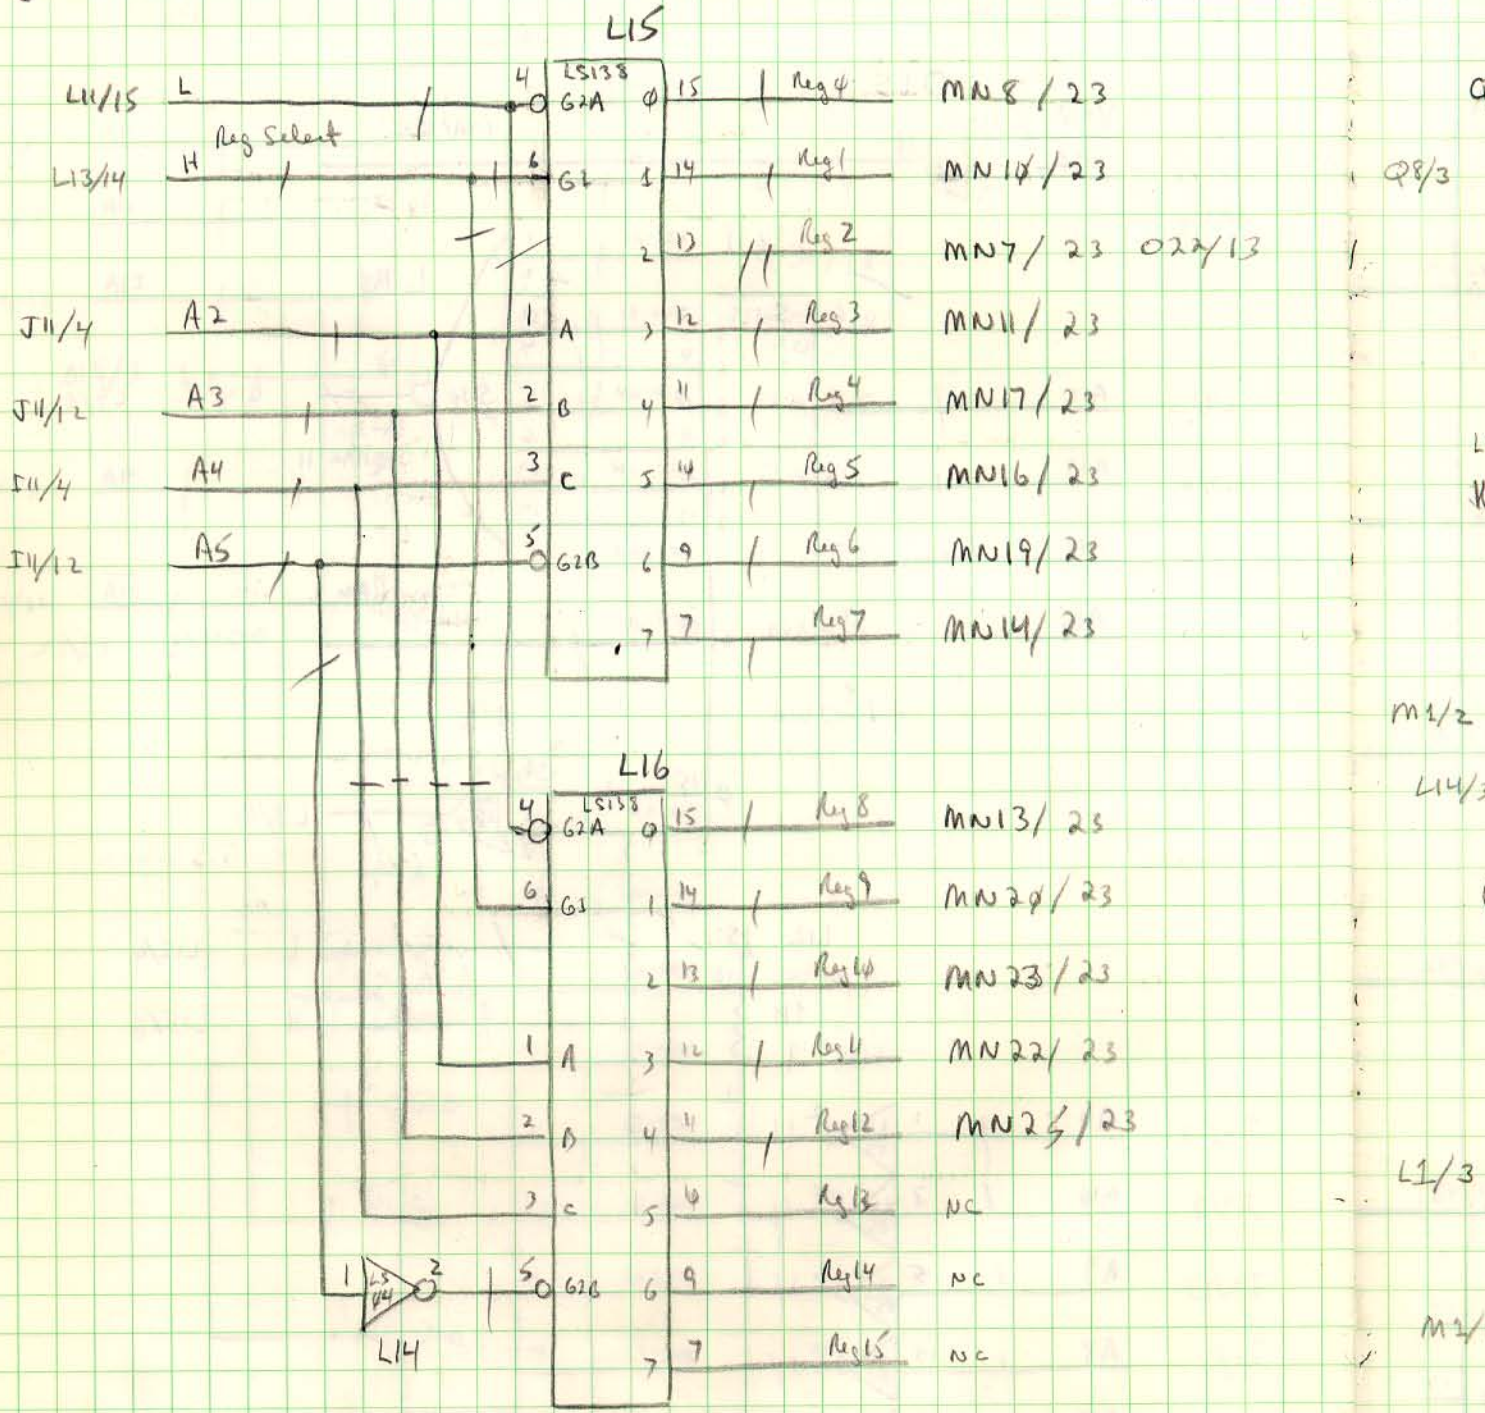 L15
LS138
L11/15 L 4 G2A 0 15 Reg φ MN8 / 23
Reg Select
L13/14 H 6 G1 1 14 Reg 1 MN1φ / 23
Q8/3
2 13 Reg 2 MN7 / 23 O22/13
J11/4 A2 1 A 3 12 Reg 3 MN11 / 23
J11/12 A3 2 B 4 11 Reg 4 MN17 / 23
I11/4 A4 3 C 5 1φ Reg 5 MN16 / 23
I11/12 A5 5 G2B 6 9 Reg 6 MN19 / 23
7 7 Reg 7 MN14 / 23
M1/2
L16
LS138
L14/3
4 G2A 0 15 Reg 8 MN13 / 23
6 G1 1 14 Reg 9 MN2φ / 23
2 13 Reg 1φ MN23 / 23
1 A 3 12 Reg 11 MN22 / 23
2 B 4 11 Reg 12 MN25 / 23
L1/3
3 C 5 1φ Reg 13 NC
1 LS φ4 2 5 G2B 6 9 Reg 14 NC
L14
7 7 Reg 15 NC